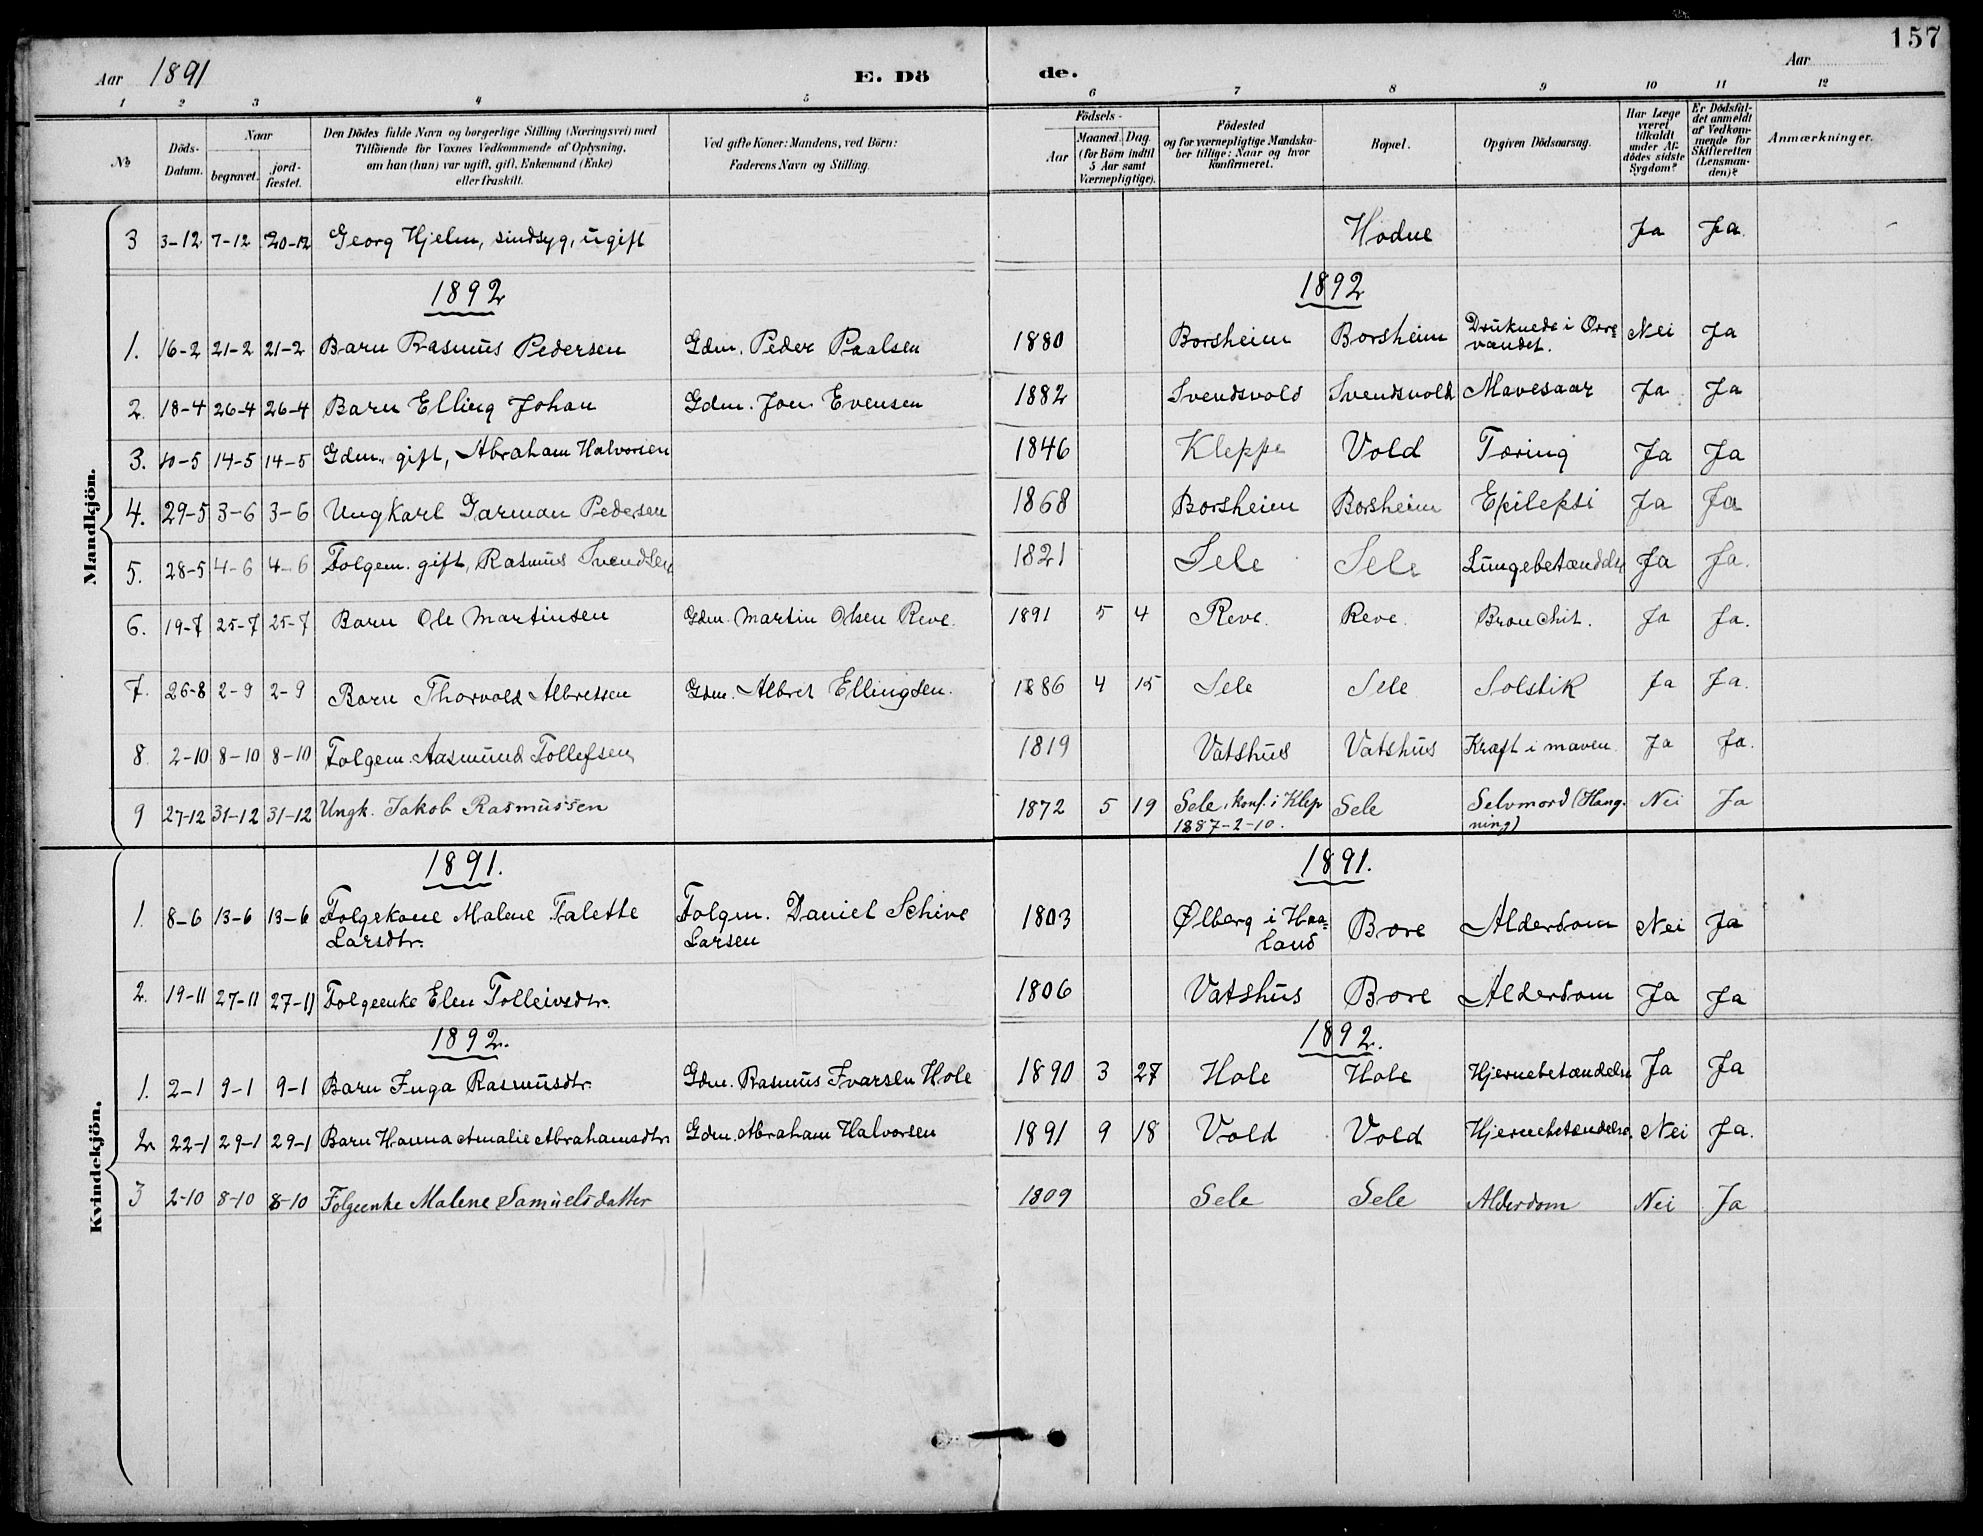 157
Aar 1891
E. Dö
de.
Aar
1 2 3 4 5 6 7 8 9 10 11 12
No
Döds-Datum.
Naar
begravet.
jord-fæstet.
Den Dödes fulde Navn og borgerlige Stilling (Næringsvei) med
Tilföiende for Voxnes Vedkommende af Oplysning,
om han (hun) var ugift, gift, Enkemand (Enke)
eller fraskilt.
Ved gifte Koner: Mandens, ved Börn:
Faderens Navn og Stilling.
Födsels-
Aar
Maaned. Dag.
(for Börn indtil
5 Aar samt
Værnepligtige).
Födested
og for værnepligtige Mandska-
ber tillige: Naar og hvor
konfirmeret.
Bopæl.
Opgiven Dödsaarsag.
Har Læge
været
tilkaldt
under Af-
dödes sidste
Sygdom?
Er Dödsfal-
det anmeldt
af Vedkom-
mende for
Skifteretten
(Lensman-
den)?
Anmærkninger.
Mandkjön.
3 3-12 7-12 20-12 Georg Hjelm, sindsyg, ugift Hodne Ja Ja.
1892 1892
1. 16-2 21-2 21-2 Barn Rasmus Pedersen Gdm. Peder Paalsen 1880 Borsheim Borsheim Druknede i Orre- Nei Ja
vandet.
2. 18-4 26-4 26-4 Barn Elling Johan Gdm. Jon Evensen 1882 Svendsvold Svendsvold Mavesaar Ja Ja
3. 10-5 14-5 14-5 Gdm., gift, Abraham Halvorsen 1846 Kleppe Vold Tæring Ja Ja
4. 29-5 3-6 3-6 Ungkarl Garman Pedersen 1868 Borsheim Borsheim Epilepsi Ja Ja
5. 28-5 4-6 4-6 Folgem. gift, Rasmus Svendsen 1821 Sele Sele Lungebetænddse Ja Ja.
6. 19-7 25-7 25-7 Barn Ole Martinsen Gdm. Martin Olsen Reve. 1891 5 4 Reve. Reve. Bronchit. Ja Ja.
7. 26-8 2-9 2-9 Barn Thorvald Albretsen Gdm. Albret Ellingsen. 1886 4 15 Sele Sele Solstik Ja Ja.
8. 2-10 8-10 8-10 Folgem. Aasmund Tollefsen 1819 Vatshus Vatshus Kræft i maven. Ja Ja.
9 27-12 31-12 31-12 Ungk. Jakob Rasmussen 1872 5 19 Sele, konf. i Klep Sele Selvmord (Hæng- Nei Ja
1887-2-10. ning)
Kvindekjön.
1891. 1891.
1. 8-6 13-6 13-6 Folgekone Malene Talette Folgm. Daniel Schive 1803 Ølberg i Haa- Bore Alderdom Nei Ja
Larsdtr. Larsen land
2. 19-11 27-11 27-11 Folgeenke Elen Tolleivsdtr. 1806 Vatshus Bore Alderdom Ja Ja
1892. 1892.
1. 2-1 9-1 9-1 Barn Inga Rasmusdtr. Gdm. Rasmus Ivarsen Hole 1890 3 27 Hole Hole Hjernebetændelse Ja Ja
2. 22-1 29-1 29-1 Barn Hanna Amalie Abrahamsdtr. Gdm. Abraham Halvorsen 1891 9 18 Vold Vold Hjernebetændelse. Nei Ja.
3 2-10 8-10 8-10 Folgeenke Malene Samuelsdatter 1809 Sele Sele Alderdom Nei Ja